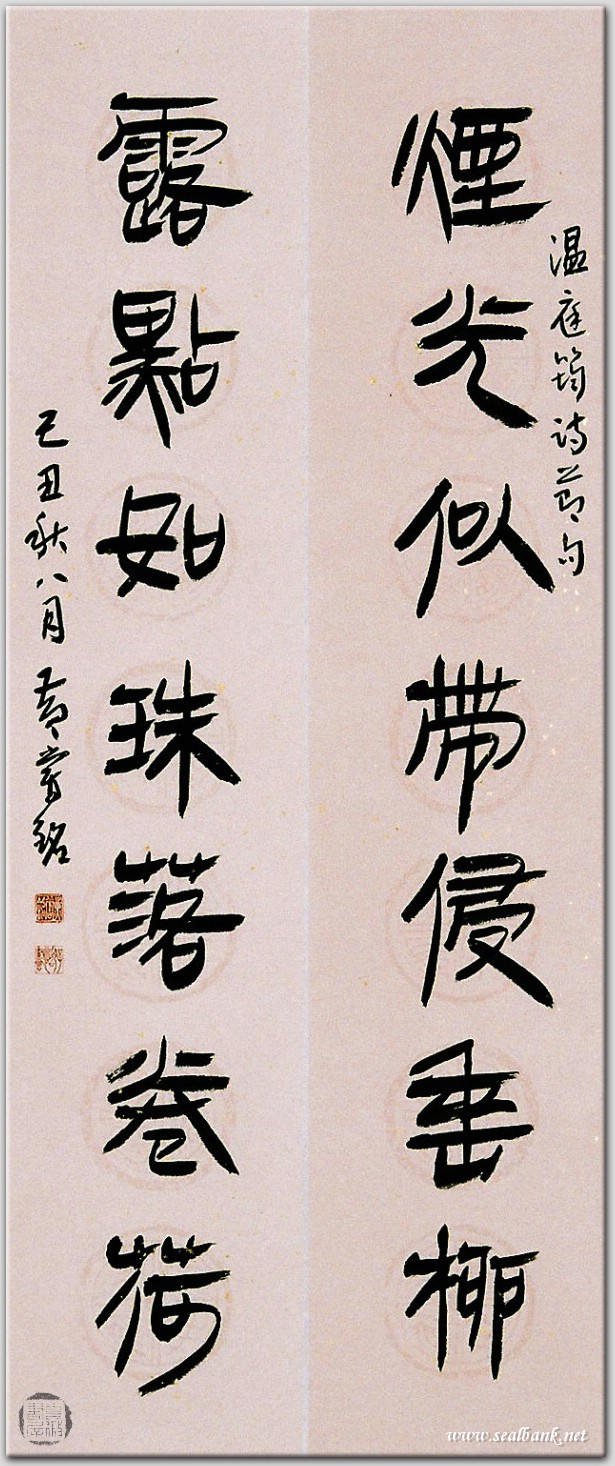 温庭筠詩節句
煙光似帶侵垂柳
露點如珠落卷荷
己丑秋八月 黃嘗銘
www.sealbank.net